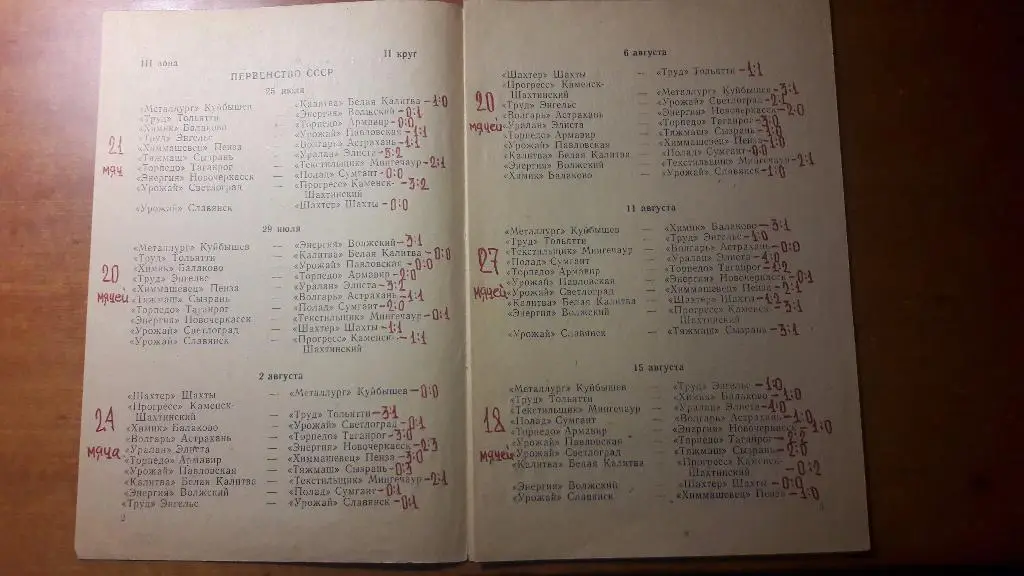 III зона II круг
ПЕРВЕНСТВО СССР
25 июля
«Металлург» Куйбышев — «Калитва» Белая Калитва –1:0
«Труд» Тольятти — «Энергия» Волжский –0:1
«Химик» Балаково — «Торпедо» Армавир –0:0
«Труд» Энгельс — «Урожай» Павловская –1:1
«Химмашевец» Пенза — «Волгарь» Астрахань –1:1
«Тяжмаш» Сызрань — «Уралан» Элиста –3:2
«Торпедо» Таганрог — «Текстильщик» Мингечаур –2:1
«Энергия» Новочеркасск — «Полад» Сумгаит –0:0
«Урожай» Светлоград — «Прогресс» Каменск- –3:2
Шахтинский
«Урожай» Славянск — «Шахтер» Шахты –0:0
21
мяч
29 июля
«Металлург» Куйбышев — «Энергия» Волжский –3:1
«Труд» Тольятти — «Калитва» Белая Калитва –0:0
«Химик» Балаково — «Урожай» Павловская –0:0
«Труд» Энгельс — «Торпедо» Армавир –2:0
«Химмашевец» Пенза — «Уралан» Элиста –3:1
«Тяжмаш» Сызрань — «Волгарь» Астрахань –1:1
«Торпедо» Таганрог — «Полад» Сумгаит –2:0
«Энергия» Новочеркасск — «Текстильщик» Мингечаур –0:1
«Урожай» Светлоград — «Шахтер» Шахты –1:1
«Урожай» Славянск — «Прогресс» Каменск- –1:1
Шахтинский
20
мячей
2 августа
«Шахтер» Шахты — «Металлург» Куйбышев –0:0
«Прогресс» Каменск-
Шахтинский — «Труд» Тольятти –3:1
«Химик» Балаково — «Урожай» Светлоград –0:1
«Волгарь» Астрахань — «Торпедо» Таганрог –3:0
«Уралан» Элиста — «Энергия» Новочеркасск –2:3
«Торпедо» Армавир — «Химмашевец» Пенза –3:0
«Урожай» Павловская — «Тяжмаш» Сызрань –0:3
«Калитва» Белая Калитва — «Текстильщик» Мингечаур –2:1
«Энергия» Волжский — «Полад» Сумгаит –0:1
«Труд» Энгельс — «Урожай» Славянск –0:1
24
мяча
2
6 августа
«Шахтер» Шахты — «Труд» Тольятти –1:1
«Прогресс» Каменск-
Шахтинский — «Металлург» Куйбышев –3:1
«Труд» Энгельс — «Урожай» Светлоград –2:1
«Волгарь» Астрахань — «Энергия» Новочеркасск –2:0
«Уралан» Элиста — «Торпедо» Таганрог –3:0
«Торпедо» Армавир — «Тяжмаш» Сызрань –1:0
«Урожай» Павловская — «Химмашевец» Пенза –1:0
«Калитва» Белая Калитва — «Полад» Сумгаит –0:0
«Энергия» Волжский — «Текстильщик» Мингечаур –2:1
«Химик» Балаково — «Урожай» Славянск –1:0
20
мячей
11 августа
«Металлург» Куйбышев — «Химик» Балаково –3:1
«Труд» Тольятти — «Труд» Энгельс –1:0
«Текстильщик» Мингечаур — «Волгарь» Астрахань –0:0
«Полад» Сумгаит — «Уралан» Элиста –1:0
«Торпедо» Армавир — «Торпедо» Таганрог –1:2
«Урожай» Павловская — «Энергия» Новочеркасск –0:1
«Урожай» Светлоград — «Химмашевец» Пенза –2:1
«Калитва» Белая Калитва — «Шахтер» Шахты –1:2
«Энергия» Волжский — «Прогресс» Каменск- –3:1
Шахтинский
«Урожай» Славянск — «Тяжмаш» Сызрань –3:1
27
мячей
15 августа
«Металлург» Куйбышев — «Труд» Энгельс –1:0
«Труд» Тольятти — «Химик» Балаково –1:0
«Текстильщик» Мингечаур — «Уралан» Элиста –1:0
«Полад» Сумгаит — «Волгарь» Астрахань –1:0
«Торпедо» Армавир — «Энергия» Новочеркасск –1:0
«Урожай» Павловская — «Торпедо» Таганрог –2:2
«Урожай» Светлоград — «Тяжмаш» Сызрань –2:0
«Калитва» Белая Калитва — «Прогресс» Каменск-
Шахтинский –0:2
«Энергия» Волжский — «Шахтер» Шахты –0:0
«Урожай» Славянск — «Химмашевец» Пенза –1:0
18
мячей